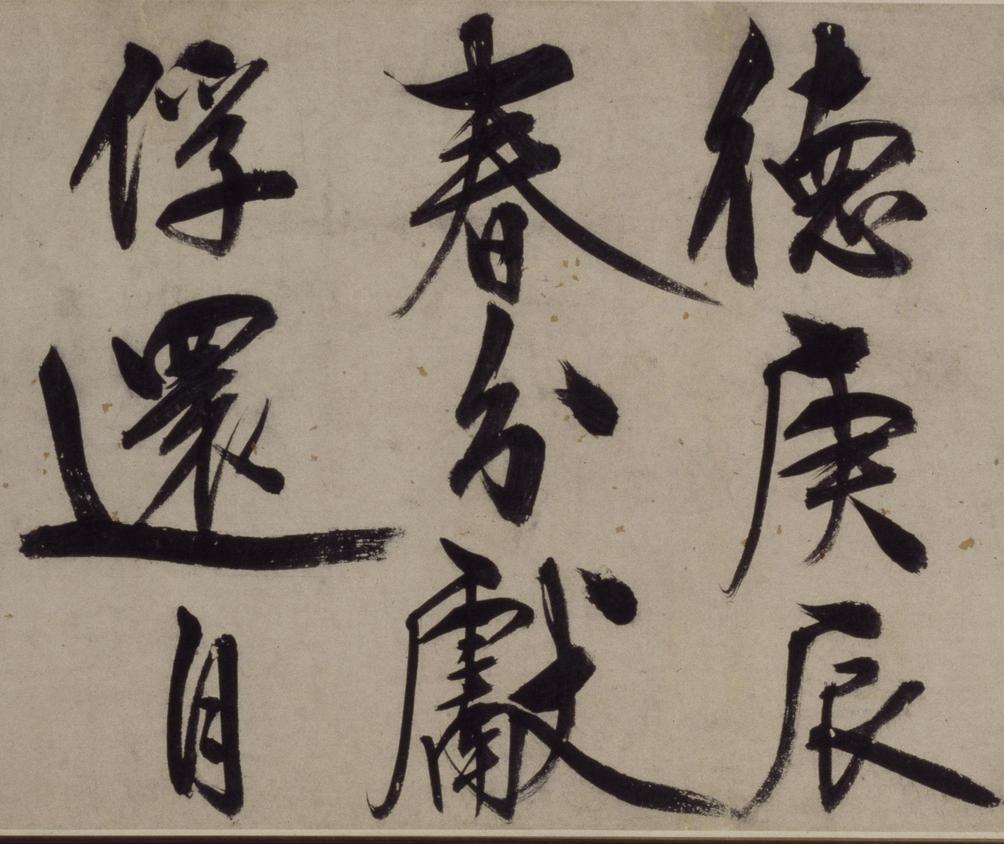 德庚辰
春分獻
俘還自